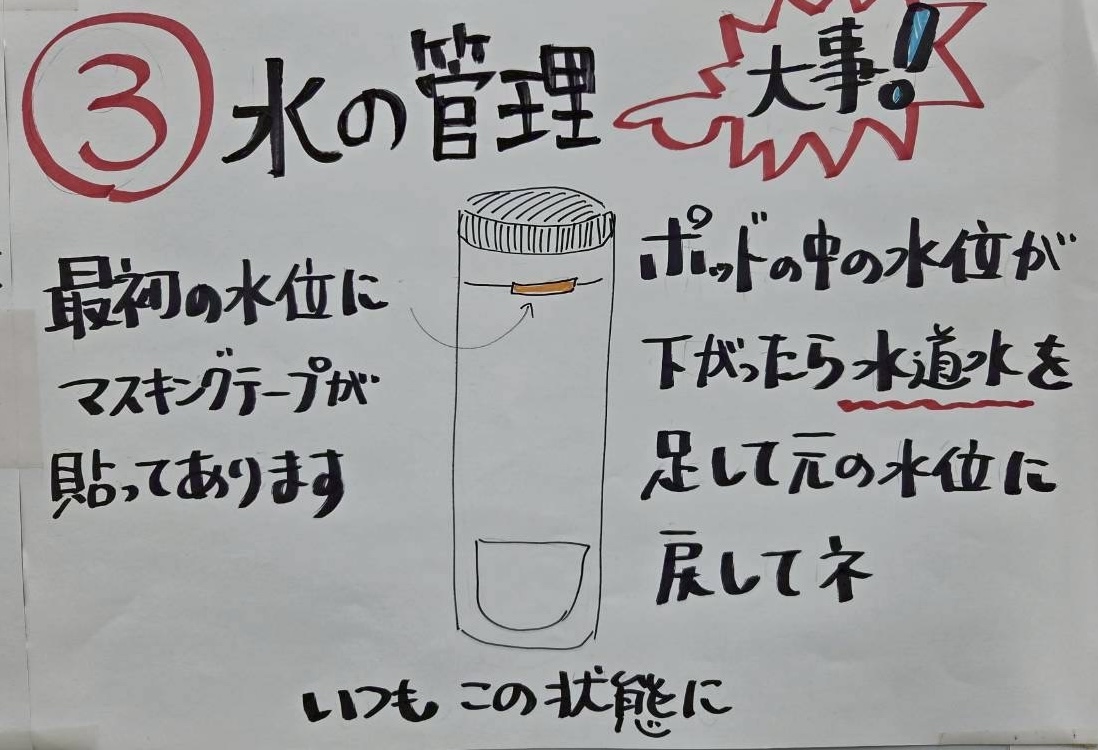 ③ 水の管理
大事!
最初の水位に
マスキングテープが
貼ってあります
ポッドの中の水位が
下がったら水道水を
足して元の水位に
戻してネ
いつもこの状態に